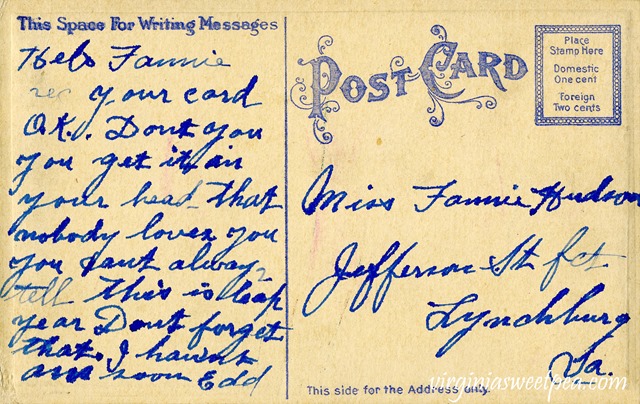 This Space For Writing Messages
Helo Fannie
rec your card
O.K. Dont you
you get it in
your head that
nobody loves you
you cant alway
tell this is leap
year Dont forget
that. I havent
ans soon Edd
POST CARD
Place
Stamp Here
Domestic
One cent
Foreign
Two cents
Miss Fannie Hudson
Jefferson St
Lynchburg
Va.
This side for the Address only.
virginiasweetpea.com